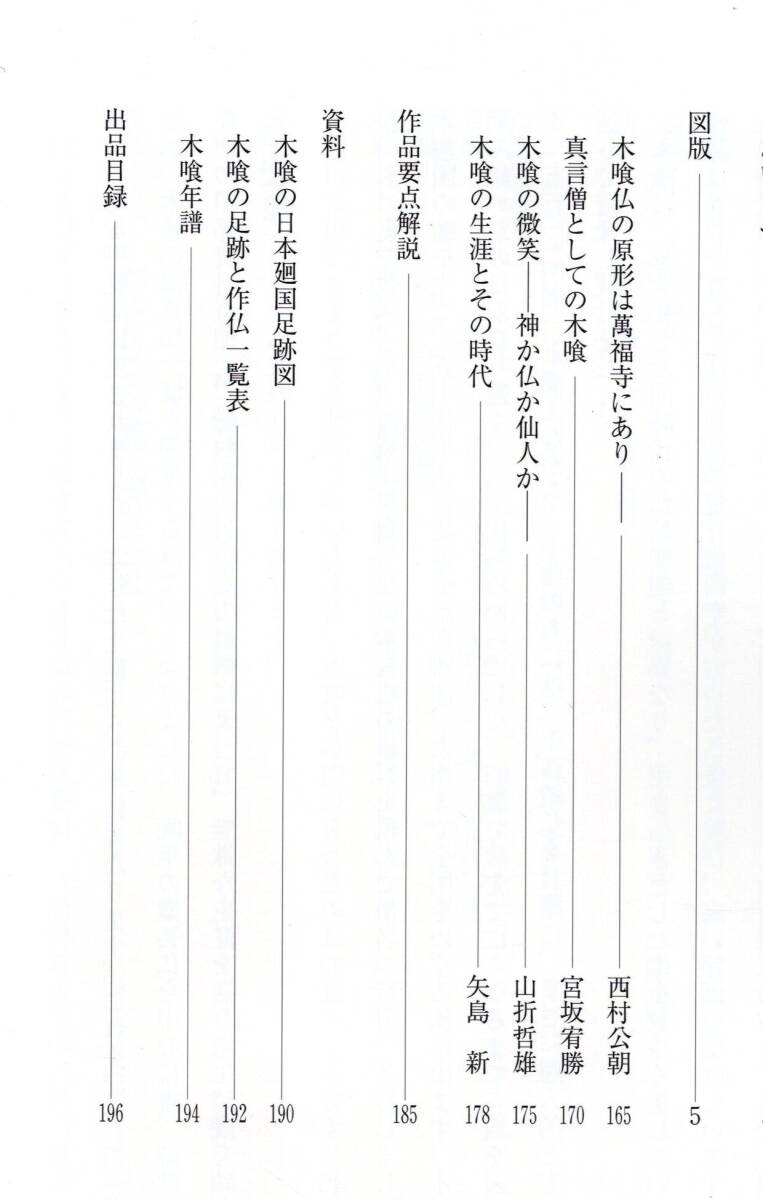 図版 5
木喰仏の原形は萬福寺にあり―― 西村公朝 165
真言僧としての木喰 宮坂宥勝 170
木喰の微笑――神か仏か仙人か―― 山折哲雄 175
木喰の生涯とその時代 矢島 新 178
作品要点解説 185
資料
木喰の日本廻国足跡図 190
木喰の足跡と作仏一覧表 192
木喰年譜 194
出品目録 196